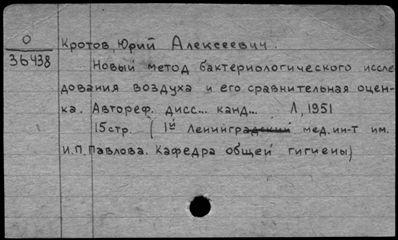 О
36438
Кротов, Юрий Алексеевич.
Новый метод бактериологического иссле
дования воздуха и его сравнительная оцен-
ка. Автореф. дисс... канд... Л, 1951
15стр. (1й Ленинградский мед.ин-т им.
И.П.Павлова. Кафедра общей гигиены)